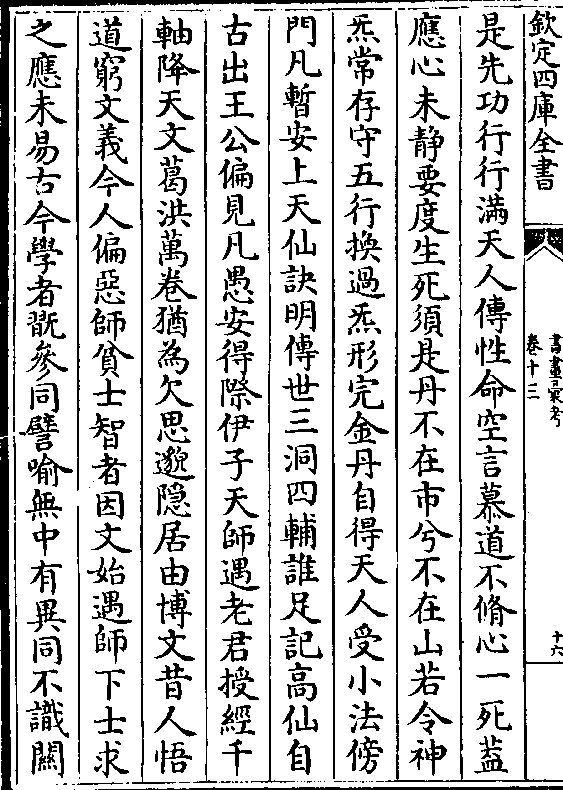 欽定四庫全書
書畫彙考
卷十三
十六
是先功行行滿天人傳性命空言慕道不脩心一死葢
應心未静要度生死須是丹不在市兮不在山若令神
炁常存守五行換過炁形完金丹自得天人受小法傍
門凡暫安上天仙訣明傳世三洞四輔誰足記高仙自
古出王公偏見凡愚安得際伊子天師遇老君授經千
軸降天文葛洪萬卷猶為欠思邈隠居由博文昔人悟
道窮文義今人偏惡師貧士智者因文始遇師下士求
之應未易古今學者翫參同譬喻無中有異同不識關